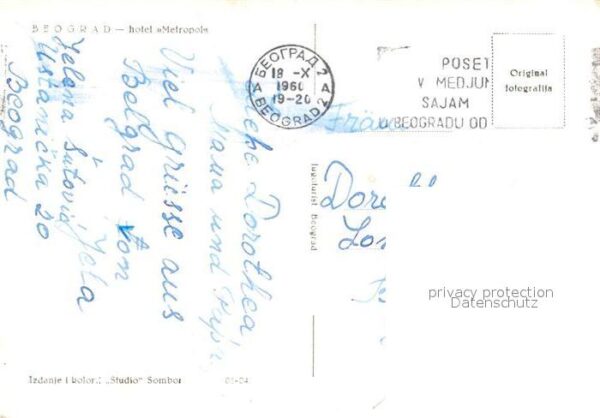 BEOGRAD — hotel »Metropol«
БЕОГРАД 2
18 -X
1960
19-20
A A
BEOGRAD 2
POSET
V MEDJUN
SAJAM
U BEOGRADU OD
Original
fotografija
Dorothea
Mama und
Viel Grüsse aus
Belgrad von
Jela
Jelena Šutović
Ustanička 20
Beograd
Jugoturist Beograd
Fräu
Dor
Los
privacy protection
Datenschutz
Izdanje i kolor.: „Studio“ Sombor